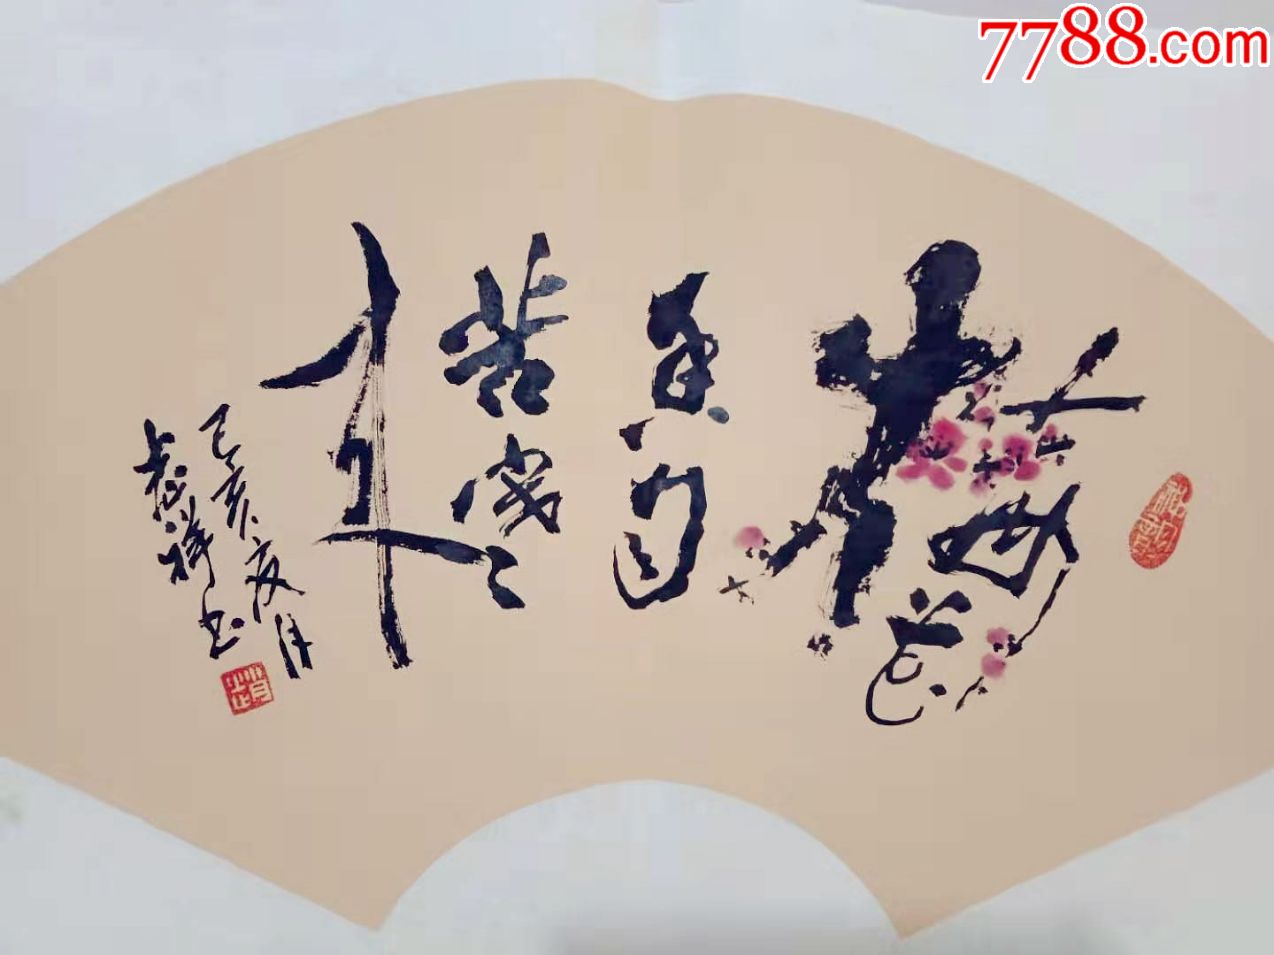 7788.com
梅花
香自
苦寒
来
己亥夏月
志祥书